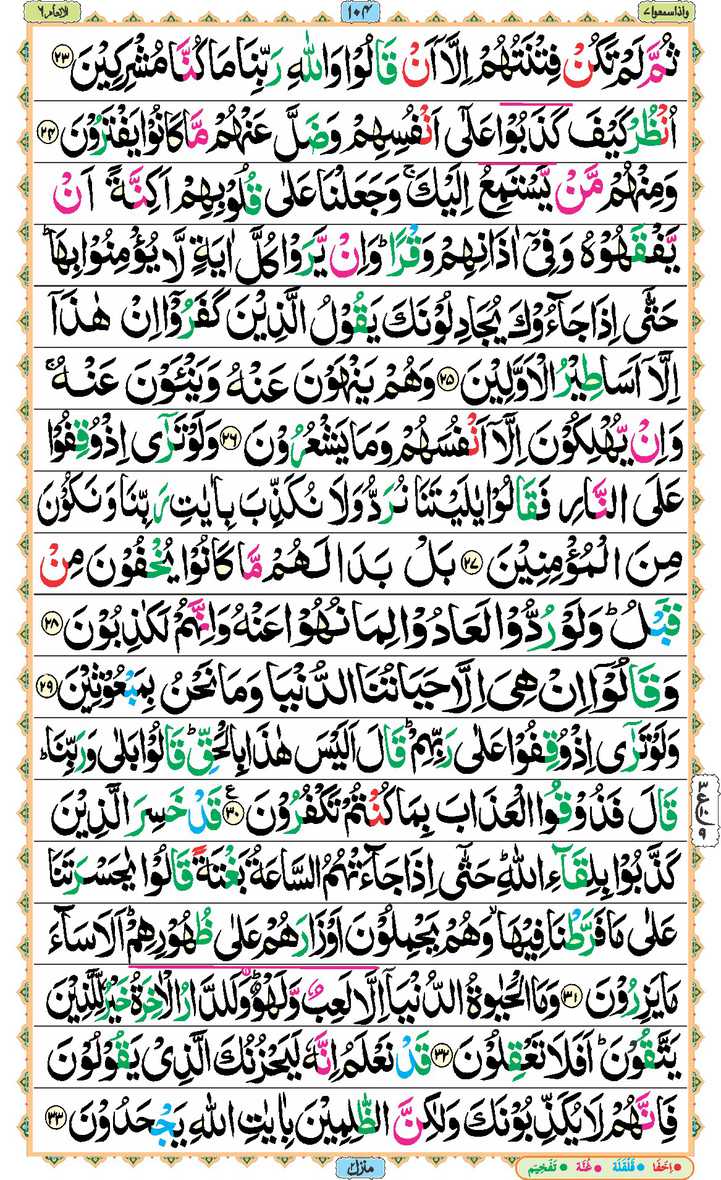 واذا سمعوا ٧ ١٠٤ الانعام ٦
ثُمَّ لَمْ تَكُنْ فِتْنَتُهُمْ اِلَّاۤ اَنْ قَالُوْا وَاللّٰهِ رَبِّنَا مَا كُنَّا مُشْرِكِیْنَ ﴿٢٣﴾
اُنْظُرْ كَیْفَ كَذَبُوْا عَلٰۤی اَنْفُسِهِمْ وَضَلَّ عَنْهُمْ مَّا كَانُوْا یَفْتَرُوْنَ ﴿٢٤﴾
وَمِنْهُمْ مَّنْ یَّسْتَمِعُ اِلَیْكَ ۚ وَجَعَلْنَا عَلٰی قُلُوْبِهِمْ اَكِنَّةً اَنْ
یَّفْقَهُوْهُ وَفِیْۤ اٰذَانِهِمْ وَقْرًا ؕ وَاِنْ یَّرَوْا كُلَّ اٰیَةٍ لَّا یُؤْمِنُوْا بِهَا ؕ
حَتّٰۤی اِذَا جَآءُوْكَ یُجَادِلُوْنَكَ یَقُوْلُ الَّذِیْنَ كَفَرُوْۤا اِنْ هٰذَاۤ
اِلَّاۤ اَسَاطِیْرُ الْاَوَّلِیْنَ ﴿٢٥﴾ وَهُمْ یَنْهَوْنَ عَنْهُ وَیَنْـَٔوْنَ عَنْهُ ۚ
وَاِنْ یُّهْلِكُوْنَ اِلَّاۤ اَنْفُسَهُمْ وَمَا یَشْعُرُوْنَ ﴿٢٦﴾ وَلَوْ تَرٰۤی اِذْ وُقِفُوْا
عَلَی النَّارِ فَقَالُوْا یٰلَیْتَنَا نُرَدُّ وَلَا نُكَذِّبَ بِاٰیٰتِ رَبِّنَا وَنَكُوْنَ
مِنَ الْمُؤْمِنِیْنَ ﴿٢٧﴾ بَلْ بَدَا لَهُمْ مَّا كَانُوْا یُخْفُوْنَ مِنْ
قَبْلُ ؕ وَلَوْ رُدُّوْا لَعَادُوْا لِمَا نُهُوْا عَنْهُ وَاِنَّهُمْ لَكٰذِبُوْنَ ﴿٢٨﴾
وَقَالُوْۤا اِنْ هِیَ اِلَّا حَیَاتُنَا الدُّنْیَا وَمَا نَحْنُ بِمَبْعُوْثِیْنَ ﴿٢٩﴾
وَلَوْ تَرٰۤی اِذْ وُقِفُوْا عَلٰی رَبِّهِمْ ؕ قَالَ اَلَیْسَ هٰذَا بِالْحَقِّ ؕ قَالُوْا بَلٰی وَرَبِّنَا ؕ
قَالَ فَذُوْقُوا الْعَذَابَ بِمَا كُنْتُمْ تَكْفُرُوْنَ ﴿٣٠﴾ ع قَدْ خَسِرَ الَّذِیْنَ
كَذَّبُوْا بِلِقَآءِ اللّٰهِ ؕ حَتّٰۤی اِذَا جَآءَتْهُمُ السَّاعَةُ بَغْتَةً قَالُوْا یٰحَسْرَتَنَا
عَلٰی مَا فَرَّطْنَا فِیْهَا ۙ وَهُمْ یَحْمِلُوْنَ اَوْزَارَهُمْ عَلٰی ظُهُوْرِهِمْ ؕ اَلَا سَآءَ
مَا یَزِرُوْنَ ﴿٣١﴾ وَمَا الْحَیٰوةُ الدُّنْیَاۤ اِلَّا لَعِبٌ وَّلَهْوٌ ؕ وَلَلدَّارُ الْاٰخِرَةُ خَیْرٌ لِّلَّذِیْنَ
یَتَّقُوْنَ ؕ اَفَلَا تَعْقِلُوْنَ ﴿٣٢﴾ قَدْ نَعْلَمُ اِنَّهٗ لَیَحْزُنُكَ الَّذِیْ یَقُوْلُوْنَ
فَاِنَّهُمْ لَا یُكَذِّبُوْنَكَ وَلٰكِنَّ الظّٰلِمِیْنَ بِاٰیٰتِ اللّٰهِ یَجْحَدُوْنَ ﴿٣٣﴾
منزل ٢ اِخْفَا قَلْقَلَة غُنَّة تَفْخِيْم